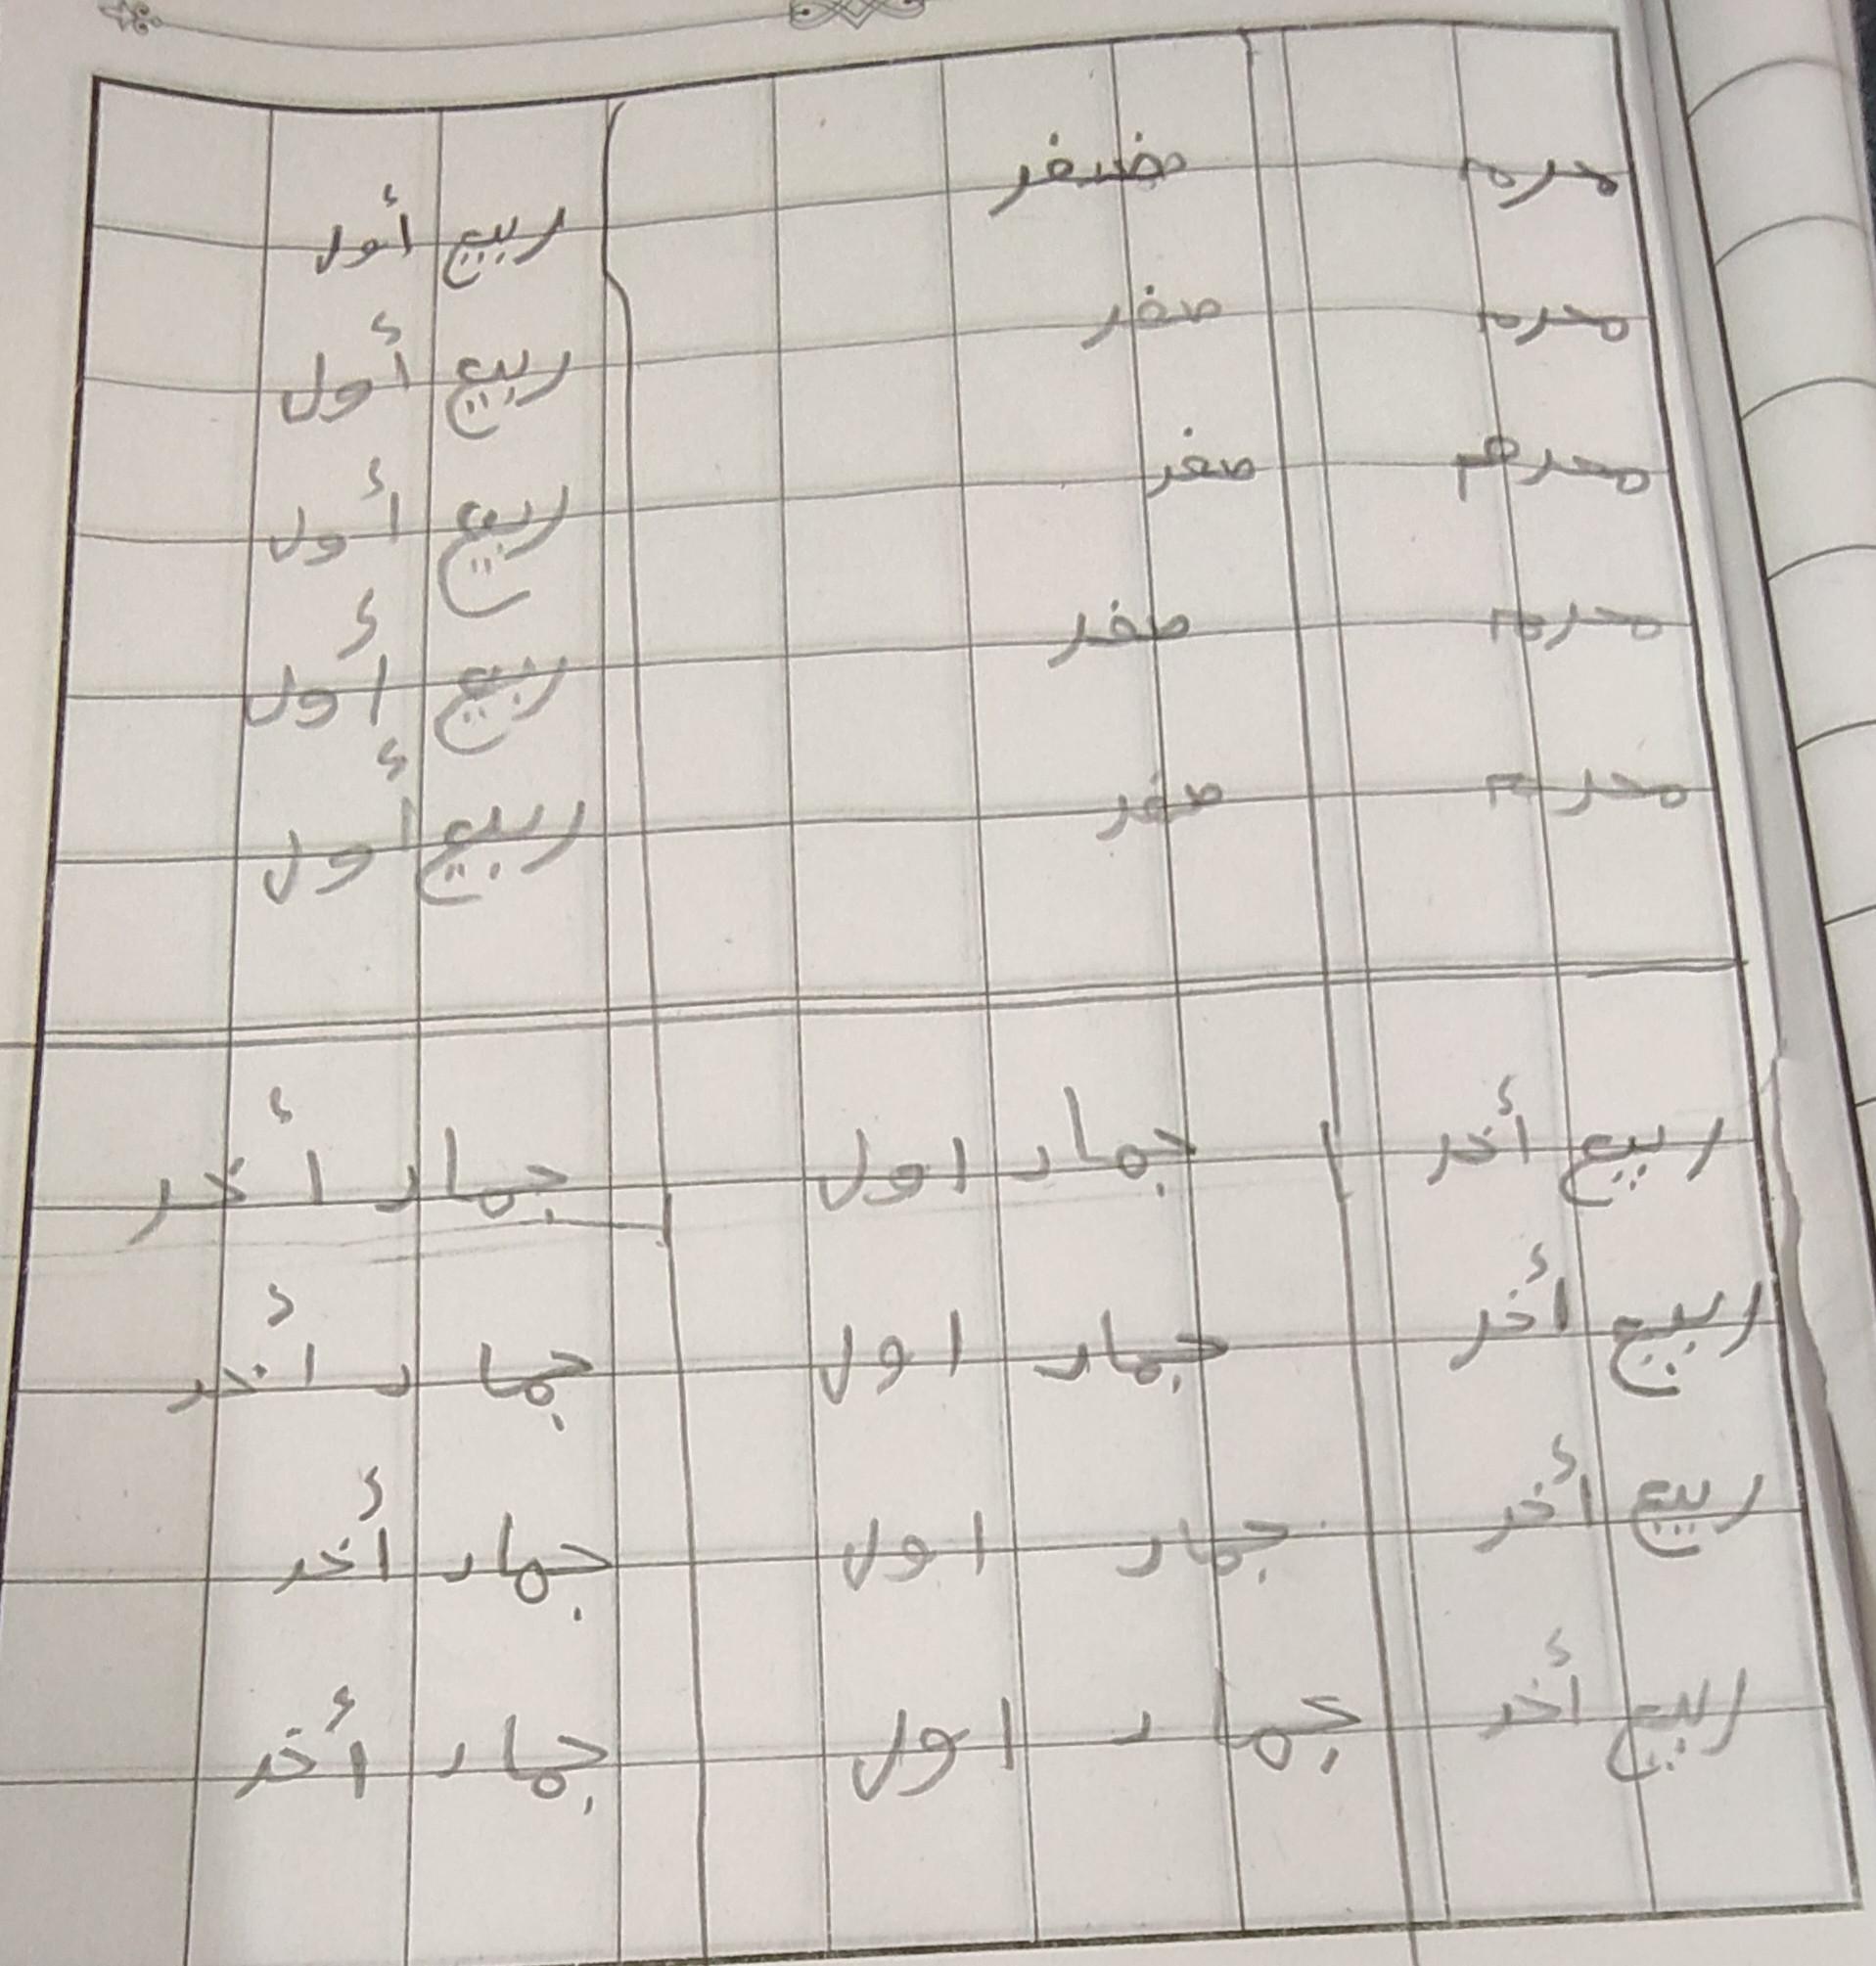 محرم صضفر ربيع أول
محرم صفر ربيع أول
محرم صفر ربيع أول
محرم صفر ربيع أول
محرم صفر ربيع أول
ربيع أخر جماد اول جماد أخر
ربيع أخر جماد اول جماد أخر
ربيع أخر جماد اول جماد أخر
ربيع أخر جماد اول جماد أخر